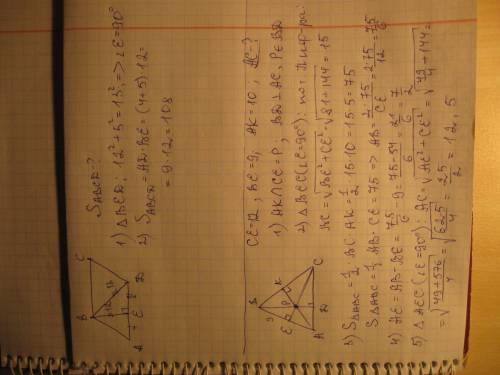 S_ABCD - ?
1) △BED: 12² + 5² = 13², => ∠E = 90°
2) S_ABCD = AD · BE = (4+5) · 12 =
= 9 · 12 = 108
B C
12 13
A 4 E 5 D
CE = 12, BE = 9, AK = 10, AC - ?
1) AK ∩ CE = P, BD ⊥ AC, P ∈ BD
2) △BEC (∠E = 90°): по т. Пифагора:
BC = √BE² + CE² = √81 + 144 = 15
B
9
E P K
A D C
3) S_△ABC = 1/2 BC · AK = 1/2 · 15 · 10 = 15 · 5 = 75
S_△ABC = 1/2 AB · CE = 75 => AB = 2 · 75 / CE = 2 · 75 / 12 = 75/6
4) AE = AB - BE = 75/6 - 9 = 75 - 54 / 6 = 21/6 = 7/2
5) △AEC (∠E = 90°): AC = √AE² + CE² = √49/4 + 144 =
= √49 + 576 / 4 = √625/4 = 25/2 = 12,5